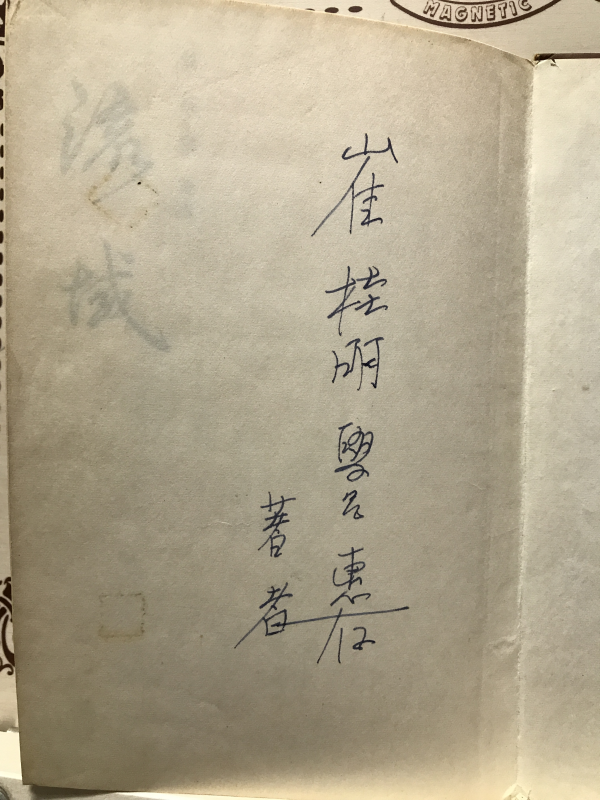 MAGNETIC
崔桂明學兄惠存
著者
流域